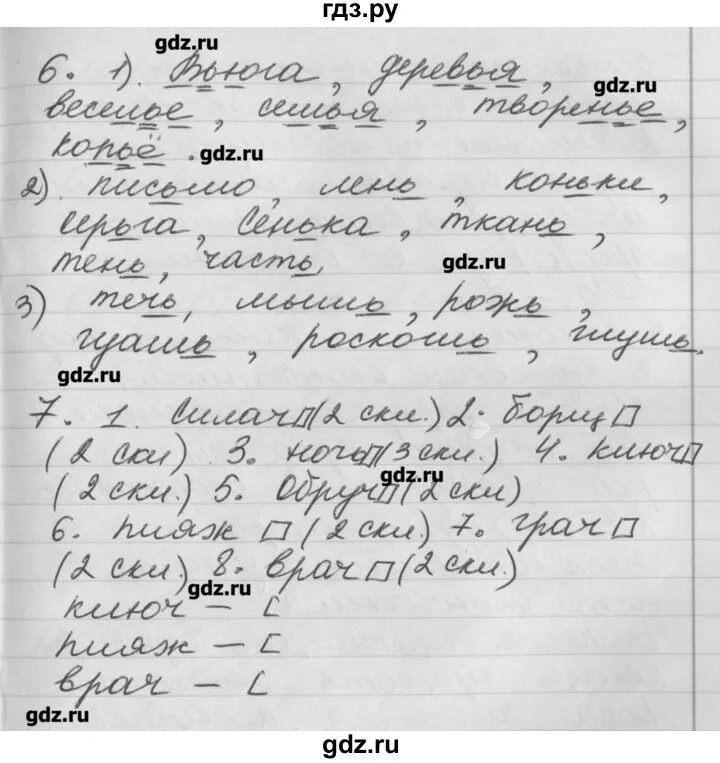 гдз.ру
gdz.ru
6. 1). Вьюга, деревья,
gdz.ru
веселье, семья, творенье,
копьё. gdz.ru
2). письмо, лень, коньки,
серьга, Сенька, ткань,
тень, часть, gdz.ru
3) течь, мышь, рожь,
гуашь, роскошь, глушь.
gdz.ru
7. 1. Силач□(2 скл.) 2. борщ□
(2 скл) 3. ночь□(3 скл.) 4. ключ□
gdz.ru
(2 скл.) 5. Обруч□(2 скл)
6. пляж □ (2 скл.) 7. грач□
(2 скл.) 8. врач□(2 скл.)
gdz.ru
ключ – [
пляж – [
врач – [
gdz.ru
gdz.ru